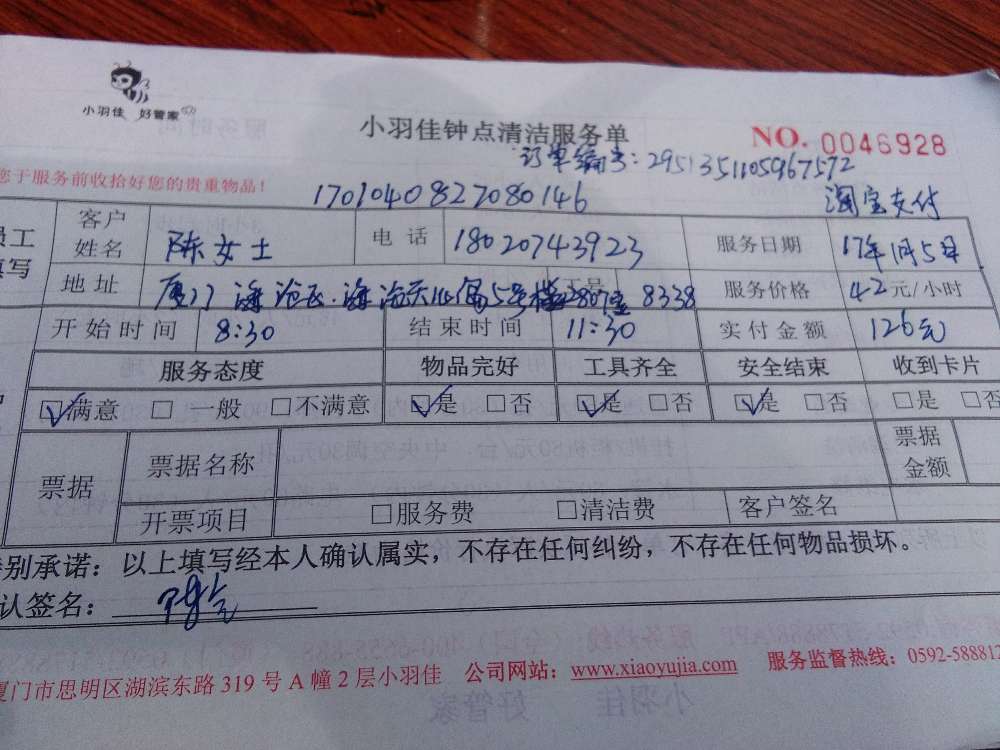 小羽佳 好管家
小羽佳钟点清洁服务单 NO. 0046928
订单编号:2951351105967572
您于服务前收拾好您的贵重物品!
1701040827080146 淘宝支付
员工填写 客户姓名 陈女士 电话 18020743923 服务日期 17年1月5日
地址 厦门 海沧区·海沧 5号楼2807室 8338 服务价格 42元/小时
开始时间 8:30 结束时间 11:30 实付金额 126元
服务态度 物品完好 工具齐全 安全结束 收到卡片
☑满意 □一般 □不满意 ☑是 □否 ☑是 □否 ☑是 □否 □是 □否
票据 票据名称 票据金额
开票项目 □服务费 □清洁费 客户签名
特别承诺:以上填写经本人确认属实,不存在任何纠纷,不存在任何物品损坏。
认签名:
厦门市思明区湖滨东路319号A幢2层小羽佳 公司网站:www.xiaoyujia.com 服务监督热线:0592-588812